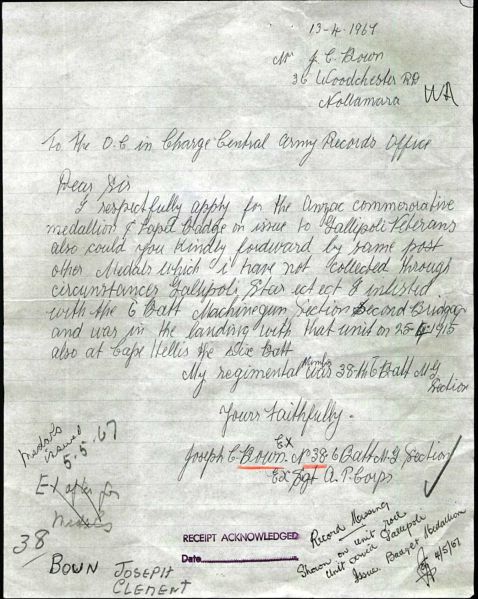 13-4-1967
Mr J. C. Bown
36 Woodchester RD
Nollamara WA
To The O.C in Charge Central Army Records Office
Dear Sir
I respectfully apply for the Anzac commorative
medallion & Lapel Badge on issue to Gallipoli Veterans
also could you kindly forward by same post
other Medals which i have not collected through
circumstances Gallipoli Star ect ect I inlisted
with the 6 Batt Machinegun Section Second Brigade
and was in the landing with that unit on 25-4-1915
also at Cape Hellis the
My regimental Number was 38 6 Batt M-G
Section
Yours Faithfully.
Joseph C. Bown Ex No 38 6 Batt M-G Section
Ex Sgt A.P. Corps
Medals
issued
5.5.67
Ex
Medals
38
BOWN JOSEPH
CLEMENT
RECEIPT ACKNOWLEDGED
Date
Record Missing
Shown on unit roll
unit Gallipoli
Issue Badge & Medallion
4/5/67